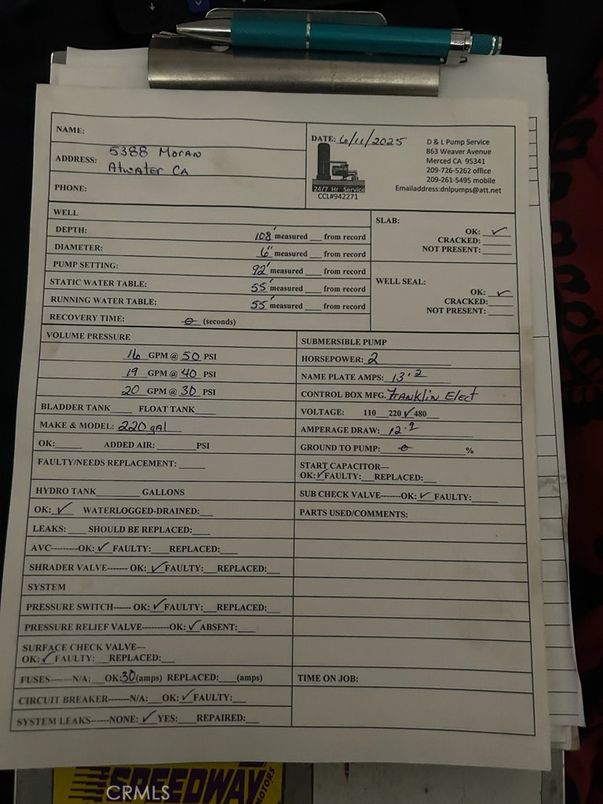 NAME:
DATE: 6/11/2025
D & L Pump Service
863 Weaver Avenue
Merced CA 95341
209-726-5262 office
209-261-5495 mobile
Emailaddress:dnlpumps@att.net
24/7 Hr Service
CCL#942271
ADDRESS: 5388 Moran
Atwater CA
PHONE:
WELL
DEPTH: 108' measured ___ from record
DIAMETER: 6" measured ___ from record
PUMP SETTING: 92' measured ___ from record
STATIC WATER TABLE: 55' measured ___ from record
RUNNING WATER TABLE: 55' measured ___ from record
RECOVERY TIME: (seconds)
SLAB:
OK: ✓
CRACKED:
NOT PRESENT:
WELL SEAL:
OK: ✓
CRACKED:
NOT PRESENT:
VOLUME PRESSURE
16 GPM @ 50 PSI
19 GPM @ 40 PSI
20 GPM @ 30 PSI
BLADDER TANK ____ FLOAT TANK ____
MAKE & MODEL: 220 gal
OK: ____ ADDED AIR: ____ PSI
FAULTY/NEEDS REPLACEMENT: ____
HYDRO TANK ____ GALLONS
OK: ✓ WATERLOGGED-DRAINED: ___
LEAKS: ___ SHOULD BE REPLACED: ___
AVC---------OK: ✓ FAULTY: ___ REPLACED: ___
SHRADER VALVE------- OK: ✓ FAULTY: ___ REPLACED: ___
SYSTEM
PRESSURE SWITCH----- OK: ✓ FAULTY: ___ REPLACED: ___
PRESSURE RELIEF VALVE---------OK: ✓ ABSENT: ___
SURFACE CHECK VALVE---
OK: ✓ FAULTY: ___ REPLACED: ___
FUSES-----N/A: ___ OK: 30 (amps) REPLACED: ___ (amps)
CIRCUIT BREAKER------N/A: ___ OK: ✓ FAULTY: ___
SYSTEM LEAKS------NONE: ✓ YES: ___ REPAIRED: ___
SUBMERSIBLE PUMP
HORSEPOWER: 2
NAME PLATE AMPS: 13.2
CONTROL BOX MFG. Franklin Elect
VOLTAGE: 110 220 ✓ 480
AMPERAGE DRAW: 12.2
GROUND TO PUMP: %
START CAPACITOR---
OK: ✓ FAULTY: ___ REPLACED: ___
SUB CHECK VALVE------OK: ✓ FAULTY: ____
PARTS USED/COMMENTS:
TIME ON JOB:
SPEEDWAY
MOTORS
CRMLS